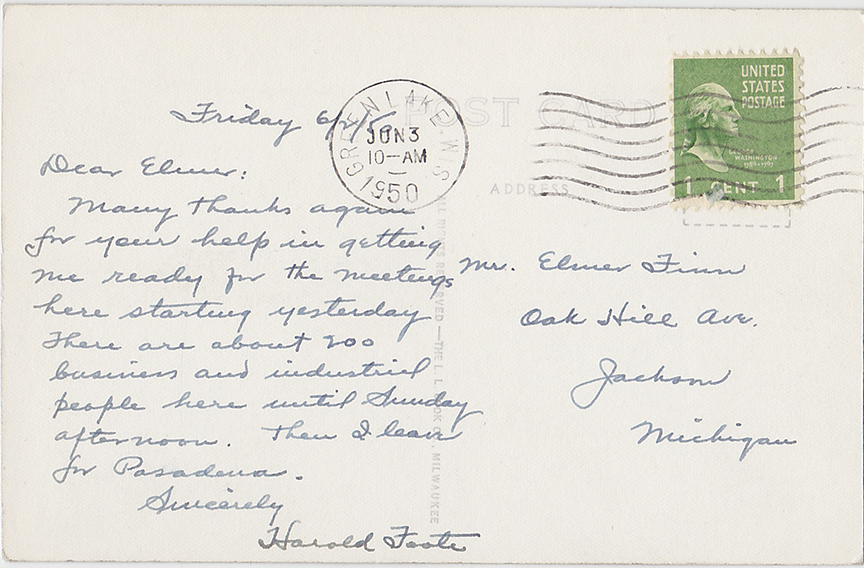 POST CARD
ADDRESS
GREEN LAKE. WIS.
JUN 3
10-AM
1950
UNITED
STATES
POSTAGE
WASHINGTON
1 CENT 1
Friday 6/2/50
Dear Elmer:
Many thanks again
for your help in getting
me ready for the meetings
here starting yesterday
There are about 200
business and industrial
people here until Sunday
afternoon. Then I leave
for Pasadena.
Sincerely
Harold Foote
Mr. Elmer Finn
Oak Hill Ave.
Jackson
Michigan
ALL RIGHTS RESERVED — THE L. L. COOK CO., MILWAUKEE